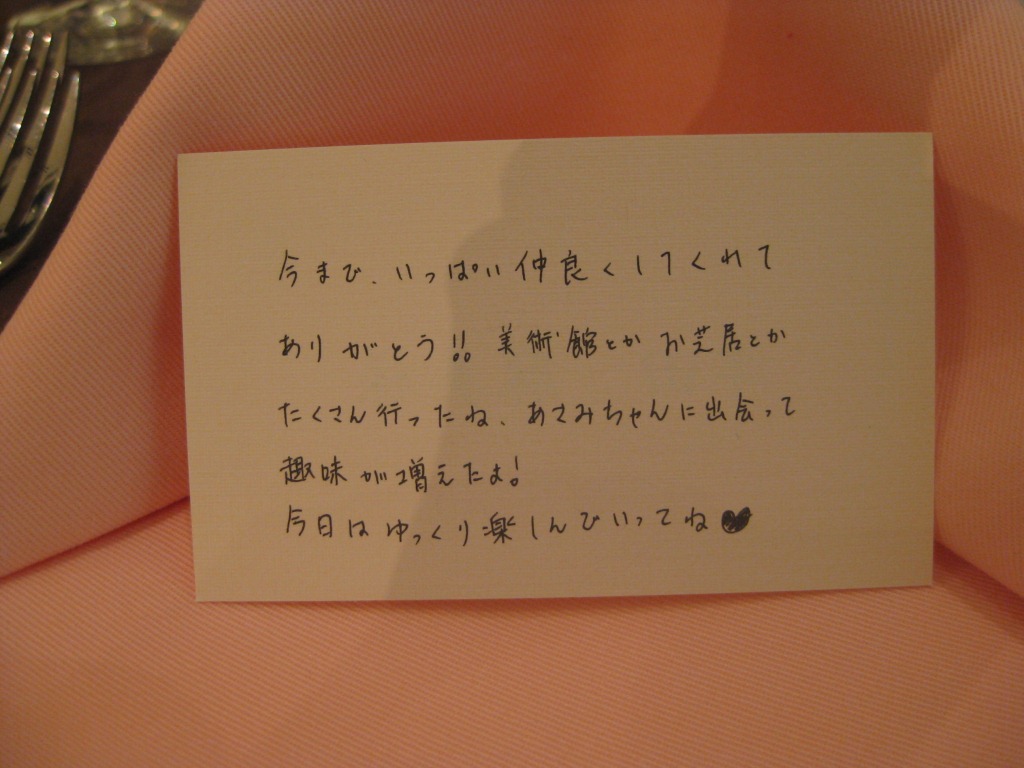 今まで、いっぱい仲良くしてくれて
ありがとう!! 美術館とかお芝居とか
たくさん行ったね、あさみちゃんに出会って
趣味が増えたよ!
今日はゆっくり楽しんでいってね♥